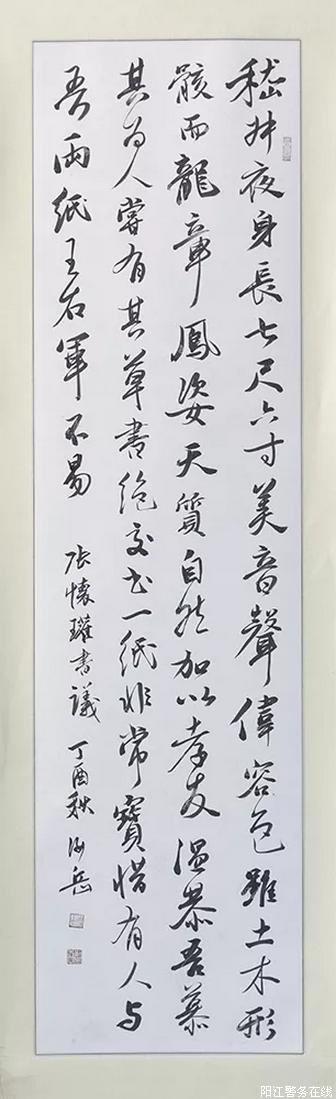 嵇叔夜身長七尺六寸美音聲偉容色雖土木形
骸而龍章鳳姿天質自然加以孝友温恭吾慕
其为人嘗有其草書絶交书一纸非常寶惜有人与
吾兩纸王右軍不易
张懷瓘書議 丁酉秋 岳
阳江警务在线